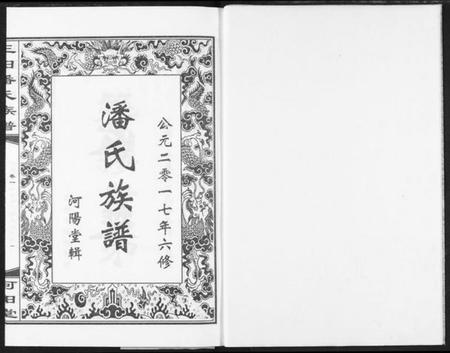 公元二零一七年六修
潘氏族譜
河陽堂輯
卷一